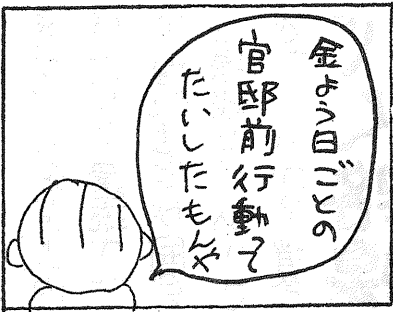 金よう日ごとの
官邸前行動って
たいしたもんや